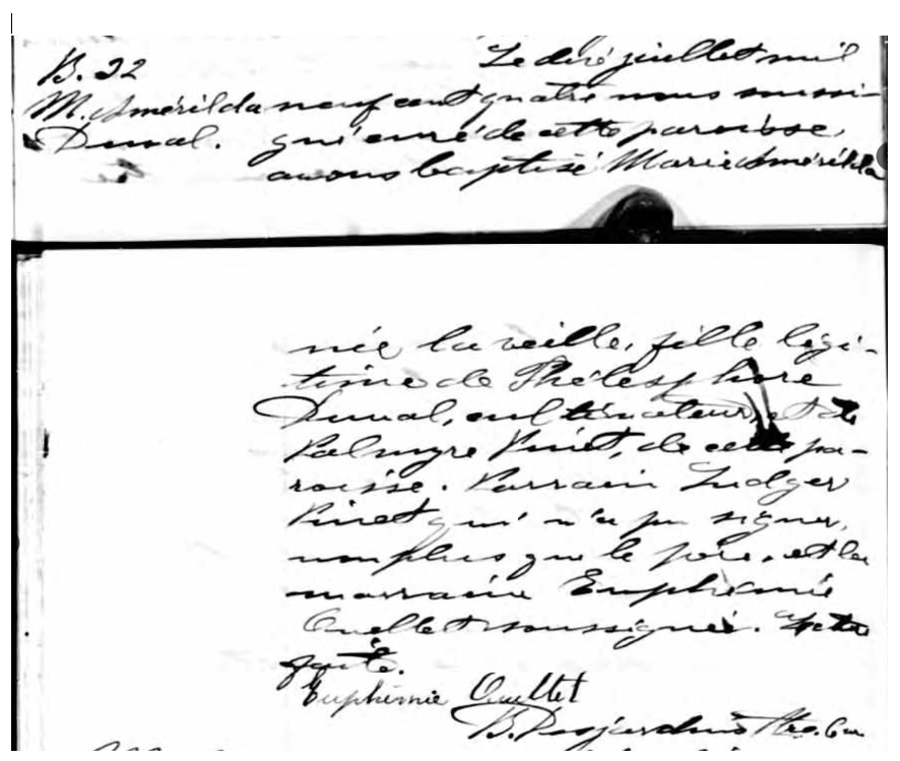 B. 32
M. Amérilda
Duval.
Le dix juillet mil
neuf cent quatre nous soussi-
gné curé de cette paroisse,
avons baptisé Marie Amérilda
née la veille, fille légi-
time de Thélesphore
Duval, cultivateur, et de
Palmyre Pinet, de cette pa-
roisse. Parrain Ludger
Pinet qui n'a pu signer,
non plus que le père, et la
marraine Euphémie
Ouellet soussignée. Lecture
faite.
Euphémie Ouellet
B. Desjardins Ptre. Cu